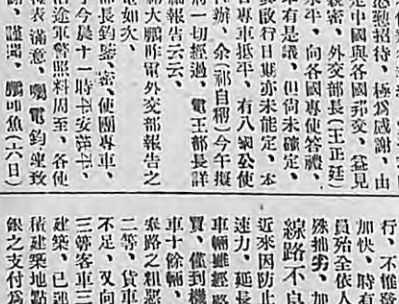 慇懃招待、極為感謝、由
定中國與各國邦交、益見
親密、外交部長(王正廷)
平、向各國專使答禮、
本有是議、但尚未確定、
啟行日期亦未能定、本
專車抵平、有八國公使
辦、余(祁自稱)今午擬
將一切經過、電王部長詳
細報告云云、
大鵬昨電外交部報告之
電如次、
部長鈞鑒密、使團專車、
今晨十一時平安
沿途軍警照料周至、各使
表滿意、囑電鈞座致
謝、謹聞、鵬叩魚(六日)
行、不惟發
加快、時有
員殆全依
殊拙劣、加
線路不良
近來因防止
速力、延長
車輛雖經路
買、僅到機
車十餘輛、
路之粗惡
二等、貨車
不足、又向
三等客車二
建築、已運
積建築地點
銀之支付為